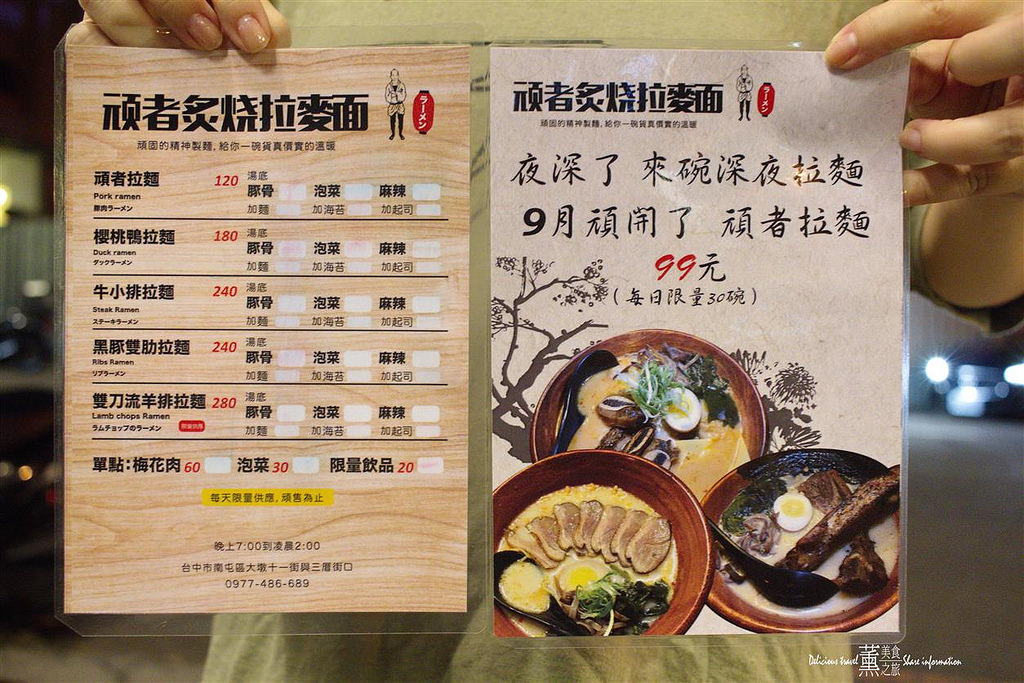 頑者炙燒拉麥面
ラーメン
頑固的精神製麵，給你一碗貨真價實的溫暖
頑者拉麵 120 湯底
Pork ramen 豚骨 泡菜 麻辣
豚肉ラーメン 加麵 加海苔 加起司
櫻桃鴨拉麵 180 湯底
Duck ramen 豚骨 泡菜 麻辣
ダックラーメン 加麵 加海苔 加起司
牛小排拉麵 240 湯底
Steak Ramen 豚骨 泡菜 麻辣
ステーキラーメン 加麵 加海苔 加起司
黑豚雙肋拉麵 240 湯底
Ribs Ramen 豚骨 泡菜 麻辣
リブラーメン 加麵 加海苔 加起司
雙刀流羊排拉麵 280 湯底
Lamb chops Ramen 豚骨 泡菜 麻辣
ラムチョップのラーメン 限量供應 加麵 加海苔 加起司
單點：梅花肉 60 泡菜 30 限量飲品 20
每天限量供應，頑售為止
晚上7:00到凌晨2:00
台中市南屯區大墩十一街與三厝街口
0977-486-689
頑者炙燒拉麥面
ラーメン
頑固的精神製麵，給你一碗貨真價實的溫暖
夜深了 來碗深夜拉麵
9月頑開了 頑者拉麵
99元
（每日限量30碗）
Delicious travel 薰 美食之旅 Share information